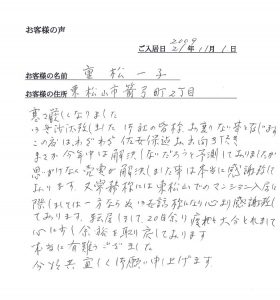 お客様の声
2009
ご入居日 21年11月1日
お客様の名前 重松一子
お客様の住所 東松山市箭弓町2丁目
寒さ厳しくなりました
御無沙汰致しました 御社の皆様 お変りない事と存じます
この度はわざわざ佐安保迄お出向き下さり
まさか今年中は解決しないだろうと予測しておりましたが
思いがけなく売電が解決しました事は本当に感謝致して
おります 又宗静様には東松山でのマンション入居に
際しましては一方なら内御親切になり心より感謝致し
ております 転居しまして20日余り 疲れも大分とれまして
心に少し余裕を取り戻しております
本当に有難うございました
今後共宜しく御願い申し上げます